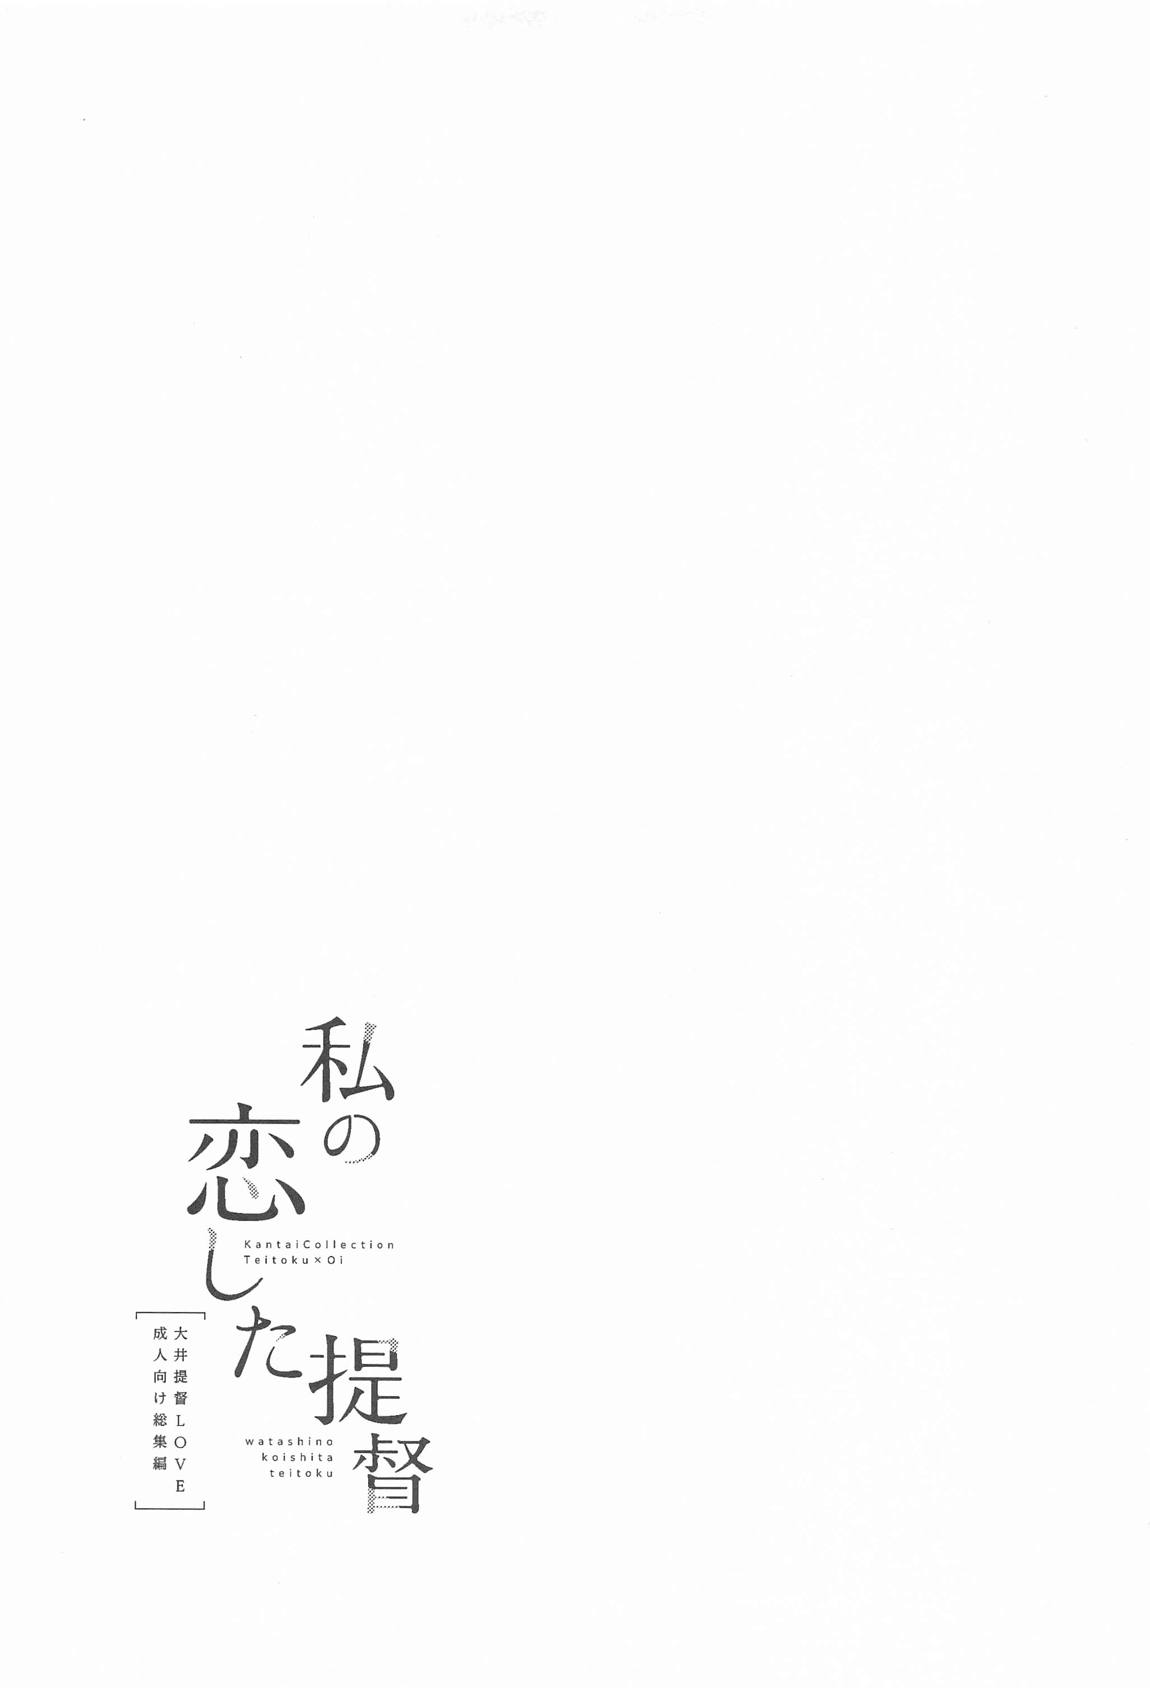 私の
恋した
提督
KantaiCollection
Teitoku×Oi
watashino
koishita
teitoku
大井提督LOVE
成人向け総集編